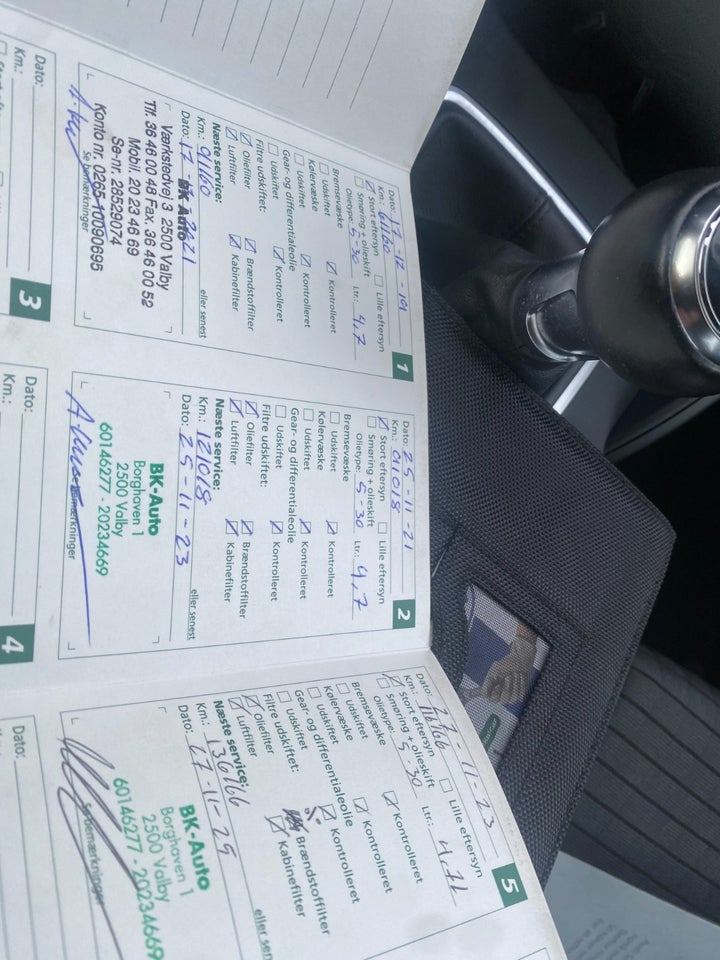 1
Dato: 17-12-19
Km.: 61160
Stort eftersyn Lille eftersyn
Smøring + olieskift
Olietype: 5-30 Ltr.: 4,7
Bremsevæske
Udskiftet Kontrolleret
Kølervæske
Udskiftet Kontrolleret
Gear- og differentialeolie
Udskiftet Kontrolleret
Filtre udskiftet:
Oliefilter Brændstoffilter
Luftfilter Kabinefilter
Næste service:
Km.: 91160 eller senest
Dato: 17-
BK Auto
Værkstedvej 3 2500 Valby
Tlf. 36 46 00 48 Fax. 36 46 00 52
Mobil. 20 23 46 69
Se-nr. 28529074
Konto nr. 0265-10090695
Se bemærkninger
2
Dato: 25-11-21
Km.: 011018
Stort eftersyn Lille eftersyn
Smøring + olieskift
Olietype: 5-30 Ltr.: 4,7
Bremsevæske
Udskiftet Kontrolleret
Kølervæske
Udskiftet Kontrolleret
Gear- og differentialeolie
Udskiftet Kontrolleret
Filtre udskiftet:
Oliefilter Brændstoffilter
Luftfilter Kabinefilter
Næste service:
Km.: 121018 eller senest
Dato: 25-11-23
BK-Auto
Borghaven 1
2500 Valby
60146277 - 20234669
Se bemærkninger
5
Dato: 27-11-23
Km.: 116166
Stort eftersyn Lille eftersyn
Smøring + olieskift
Olietype: 5-30 Ltr.:
Bremsevæske
Udskiftet Kontrolleret
Kølervæske
Udskiftet Kontrolleret
Gear- og differentialeolie
Udskiftet Kontrolleret
Filtre udskiftet:
Oliefilter Brændstoffilter
Luftfilter Kabinefilter
Næste service:
Km.: 136166 eller sen
Dato: 27-11-25
BK-Auto
Borghaven 1
2500 Valby
60146277 - 20234669
Se bemærkninger
3
Dato:
Km.:
4
Dato:
Km.:
Dato: